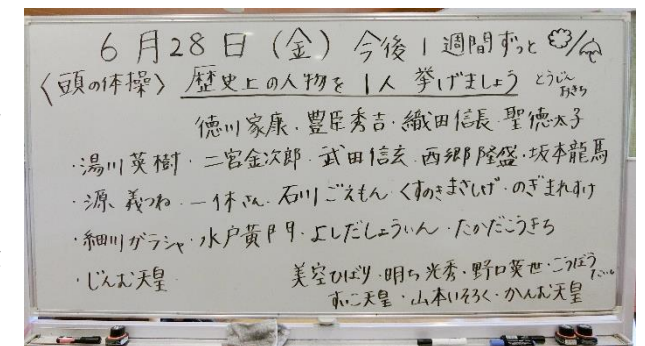 6月28日(金) 今後1週間ずっと
〈頭の体操〉 歴史上の人物を1人挙げましょう とうじんおきち
徳川家康・豊臣秀吉・織田信長・聖徳太子
・湯川英樹・二宮金次郎・武田信玄・西郷隆盛・坂本龍馬
・源義つね・一休さん・石川ごえもん・くすのきまさしげ・のぎまれすけ
・細川ガラシャ・水戸黄門・よしだしょういん・たかだこうきち
・じんむ天皇 美空ひばり・明ち光秀・野口英世・こうぼうたいし
すいこ天皇・山本いそろく・かんむ天皇